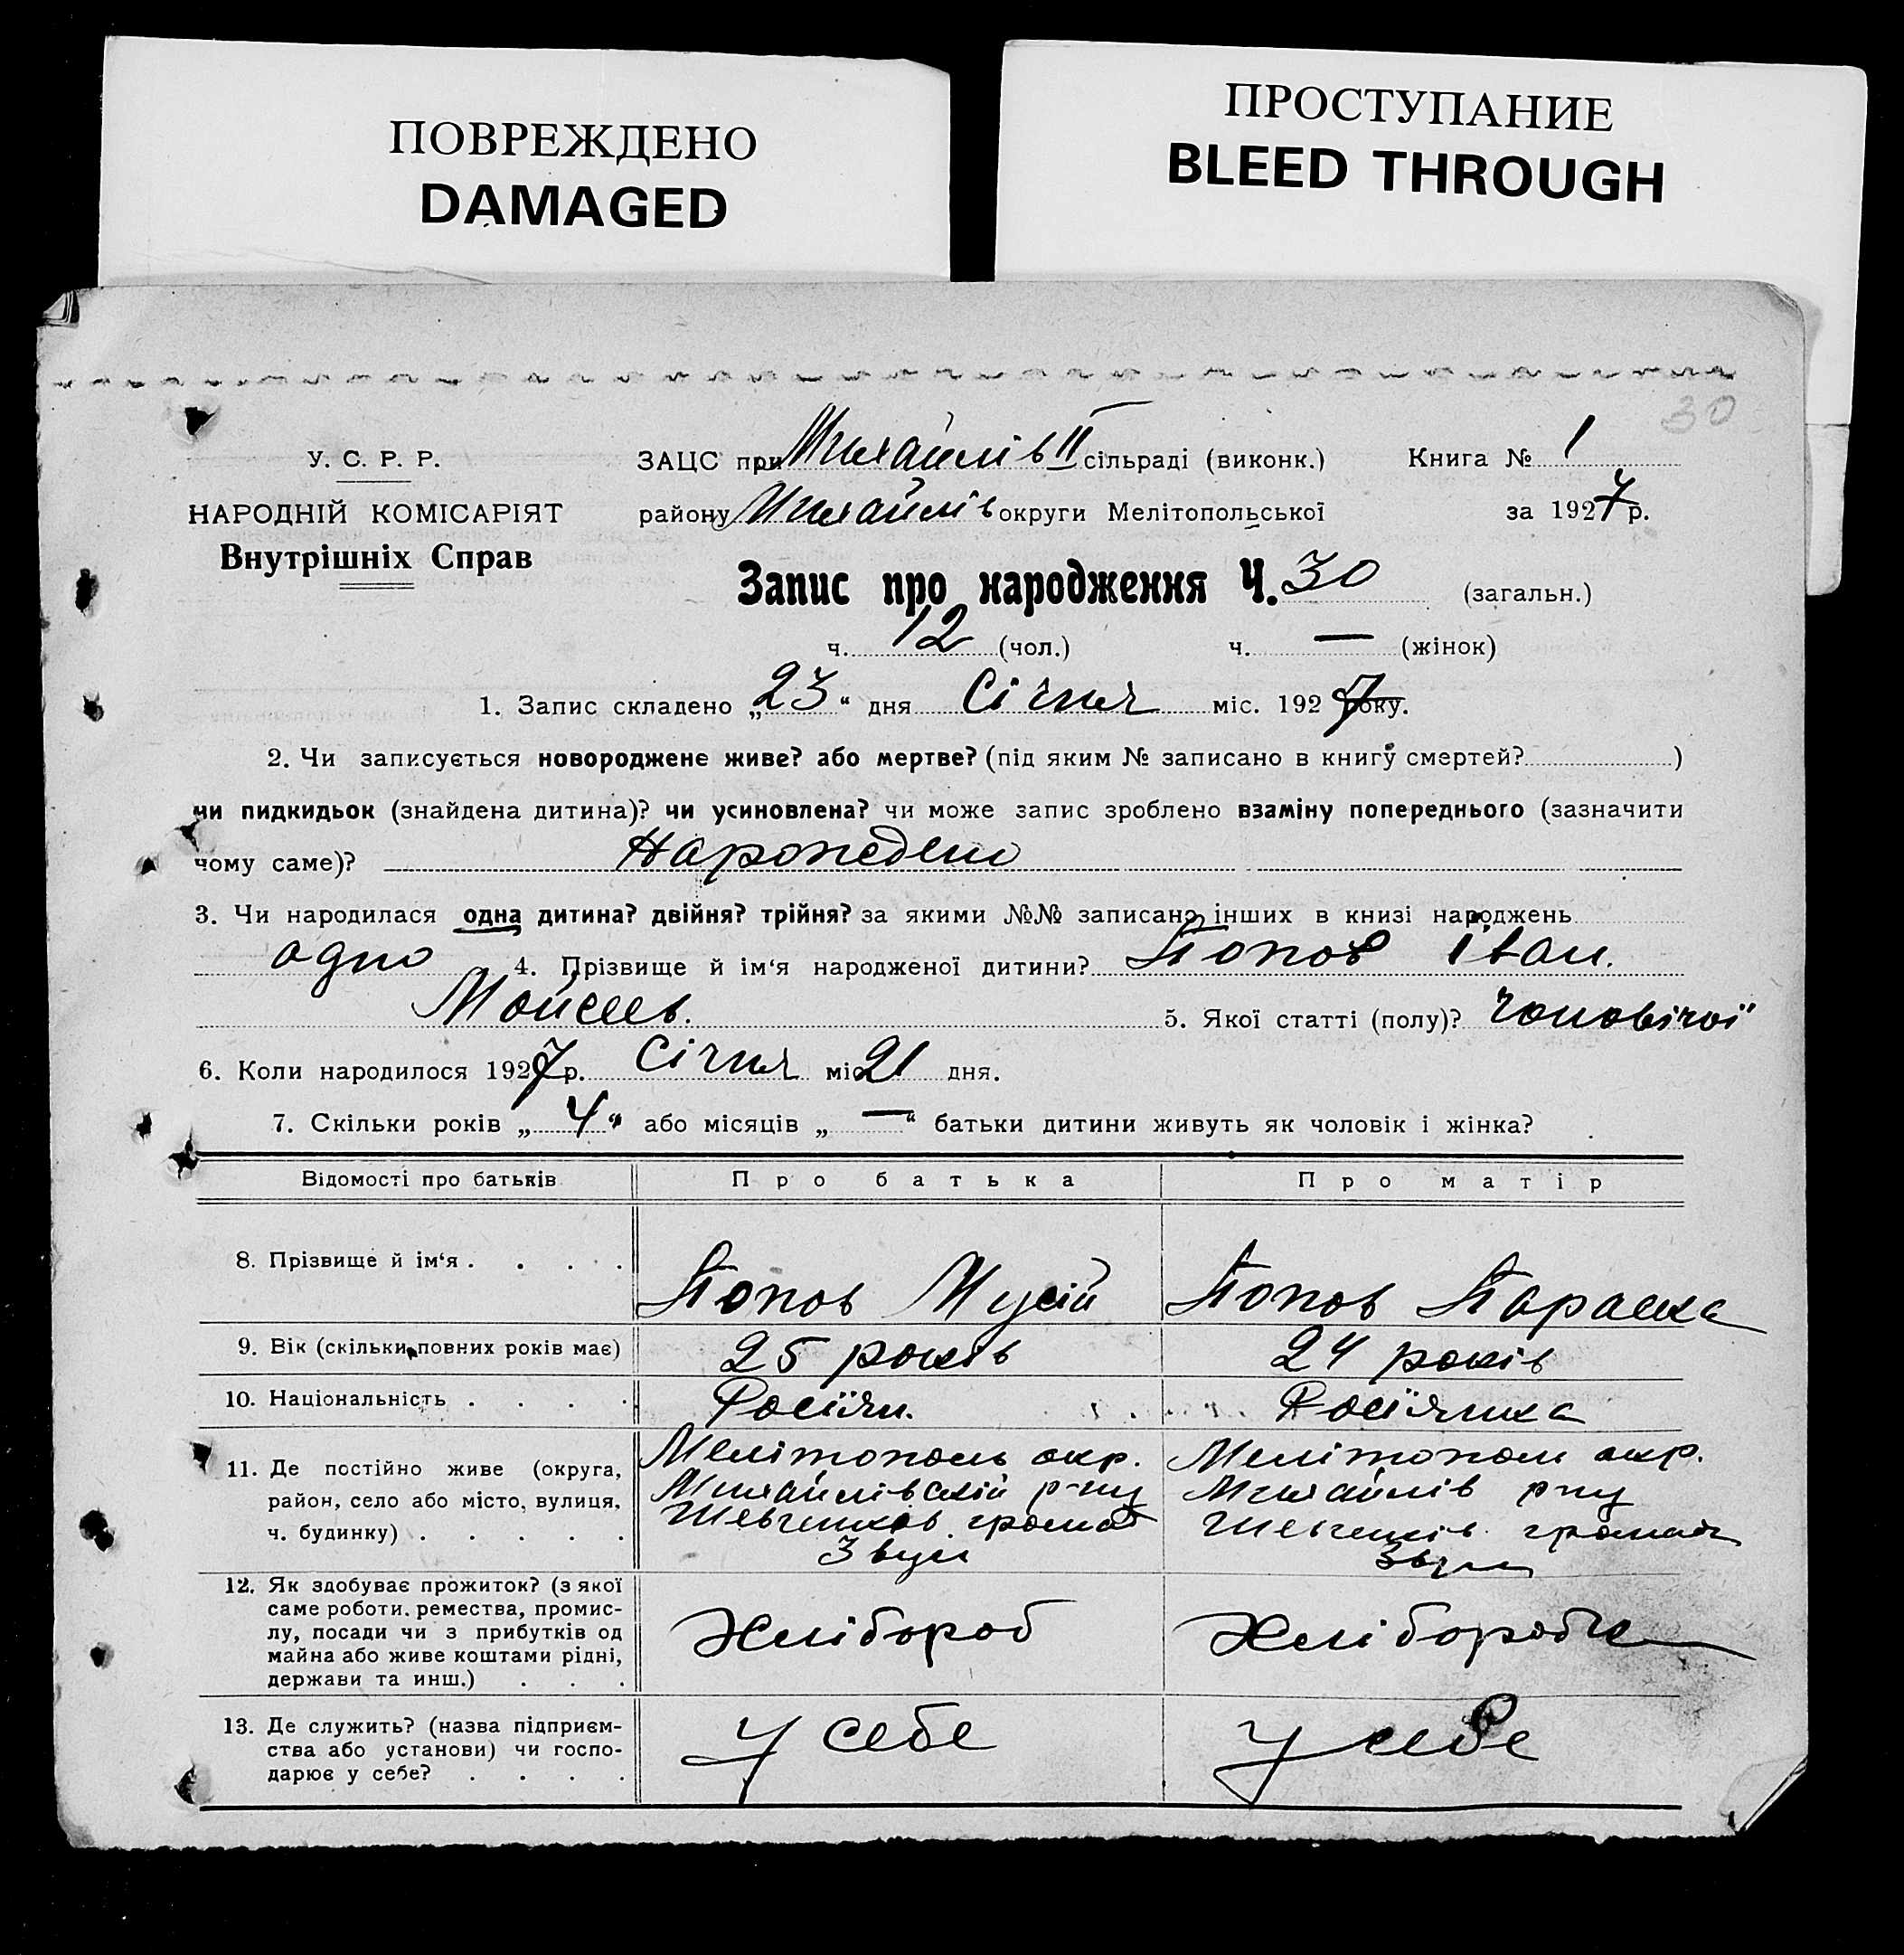 ПОВРЕЖДЕНО
DAMAGED
ПРОСТУПАНИЕ
BLEED THROUGH
30
У. С. Р. Р.
НАРОДНІЙ КОМІСАРІЯТ
Внутрішніх Справ
ЗАЦС при Михайлів II сільраді (виконк.)
Книга № 1
району Михайлів округи Мелітопольської
за 1927 р.
Запис про народження Ч. 30 (загальн.)
ч. 12 (чол.) ч. — (жінок)
1. Запис складено „23“ дня Січня міс. 1927 року.
2. Чи записується новороджене живе? або мертве? (під яким № записано в книгу смертей? )
чи пидкидьок (знайдена дитина)? чи усиновлена? чи може запис зроблено взаміну попереднього (зазначити
чому саме)? Нарожедено
3. Чи народилася одна дитина? двійня? трійня? за якими №№ записано інших в книзі народжень
одно 4. Прізвище й ім‘я народженої дитини? Попов Іван.
Мойсеев. 5. Якої статті (полу)? чоловічої
6. Коли народилося 1927 р. Січня міс 21 дня.
7. Скільки років „4“ або місяців „—“ батьки дитини живуть як чоловік і жінка?
Відомості про батьків Про батька Про матір
8. Прізвище й ім‘я . . . . Попов Мусій Попов Параска
9. Вік (скільки повних років має) 25 років 24 років
10. Національність . . . . Росіян. Росіянка
11. Де постійно живе (округа,
район, село або місто, вулиця,
ч. будинку) . . . . .
Мелітополь окр.
Михайлівський р-ну
Шевченків громад
3 вул
Мелітополь окр.
Михайлів р-ну
Шевченків громад
3 вул
12. Як здобуває прожиток? (з якої
саме роботи, ремества, промис-
лу, посади чи з прибутків од
майна або живе коштами рідні,
держави та инш.) . . .
Хлібороб
Хліборобка
13. Де служить? (назва підприєм-
ства або установи) чи госпо-
дарює у себе? . . . .
У себе
У себе